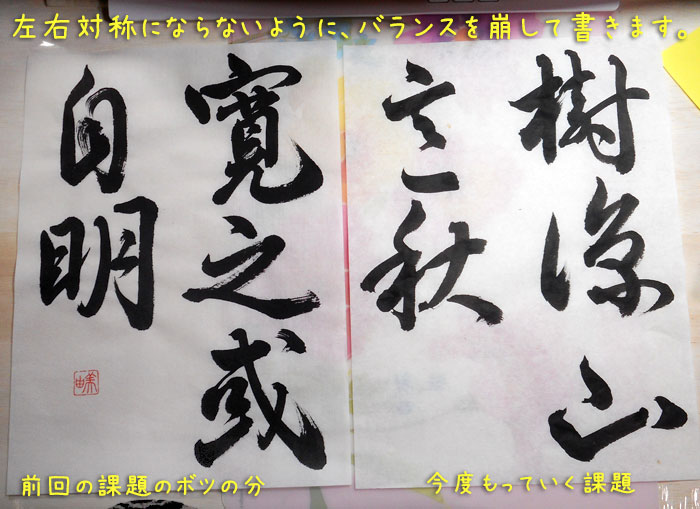 左右対称にならないように、バランスを崩して書きます。
樹涼山
意秋
寛之或
自明
前回の課題のボツの分
今度もっていく課題